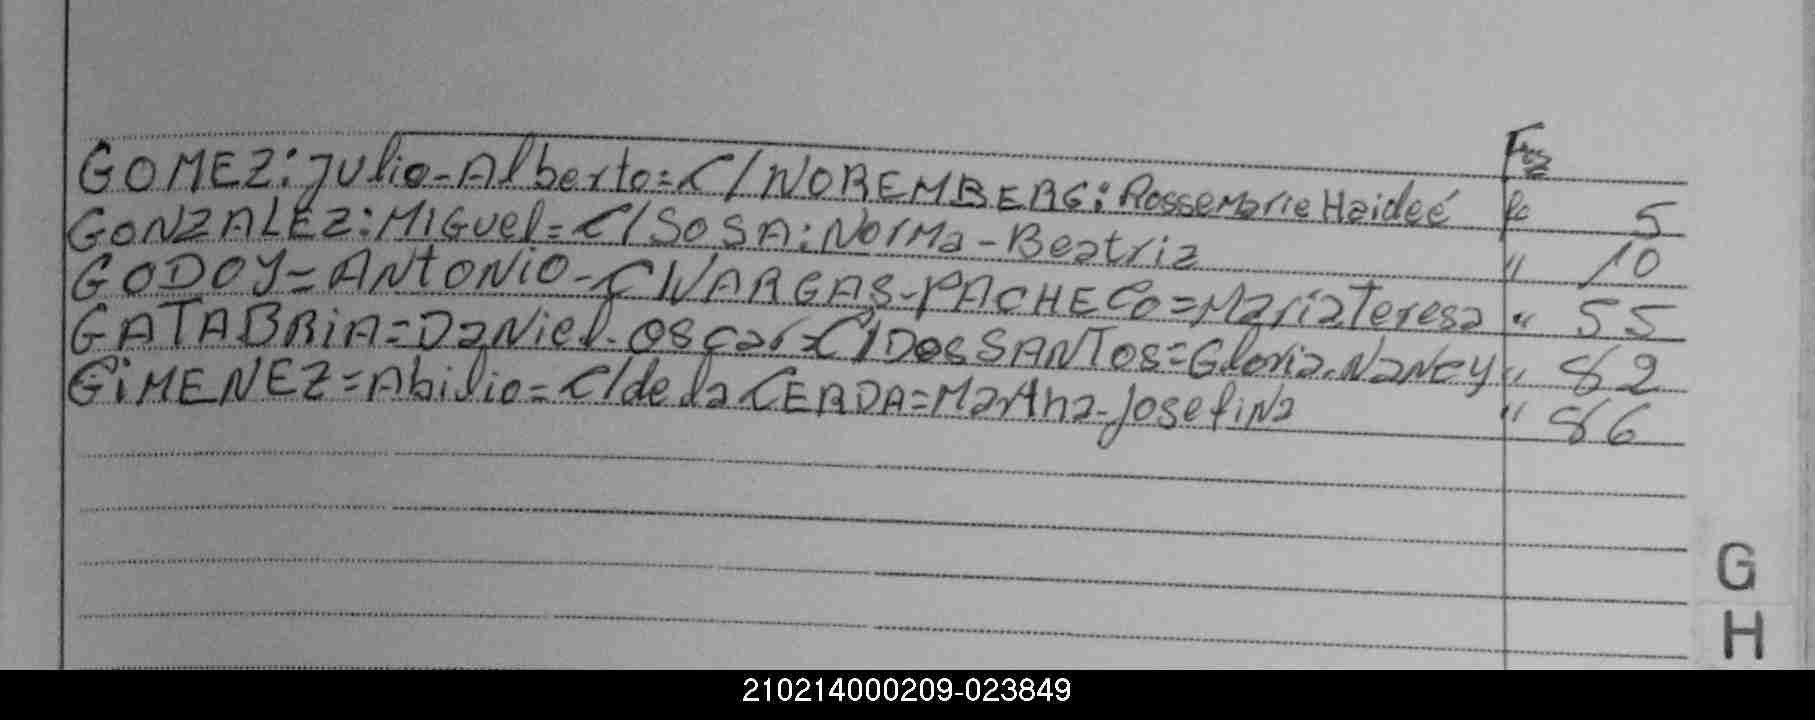 Fos
GOMEZ: Julio-Alberto=C/NOREMBERG: Rossemarie Haideé fo 5
GONZALEZ: MIGuel=C/SOSA: NorMa-Beatriz " 10
GODOY=ANTONIO-C/VARGAS-PACHECO=MariaTeresa " 55
GATABRiA=DaNiel-oscar=C/DosSANTos=Gloria-NaNcy " 82
GiMENEZ=Abilio=C/de la CERDA=Martha-JosefiNa " 86
G
H
210214000209-023849